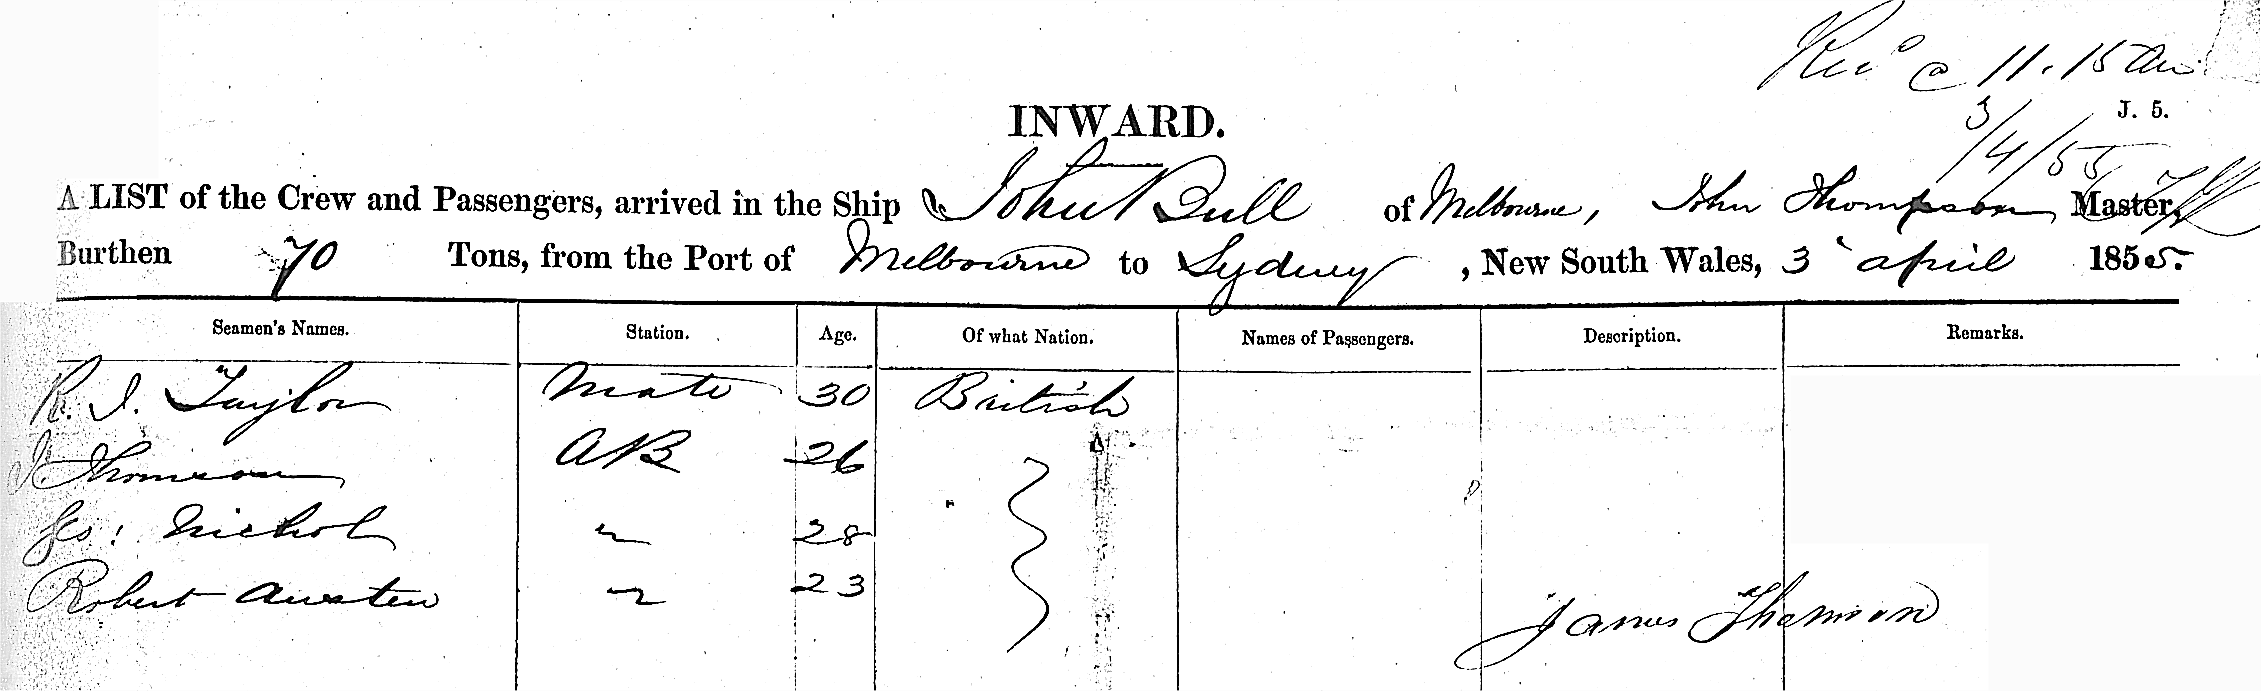 Rec'd @ 11.15 am
INWARD.
J. 5.
3/4/55
A LIST of the Crew and Passengers, arrived in the Ship John Bull of Melbourne, John Thompson Master,
Burthen 70 Tons, from the Port of Melbourne to Sydney, New South Wales, 3 April 1855.
Seamen's Names. Station. Age. Of what Nation. Names of Passengers. Description. Remarks.
R. I. Taylor Mate 30 British
Thomson AB 26
Geo: Nichol " 28
Robert Austen " 23
James Thomson